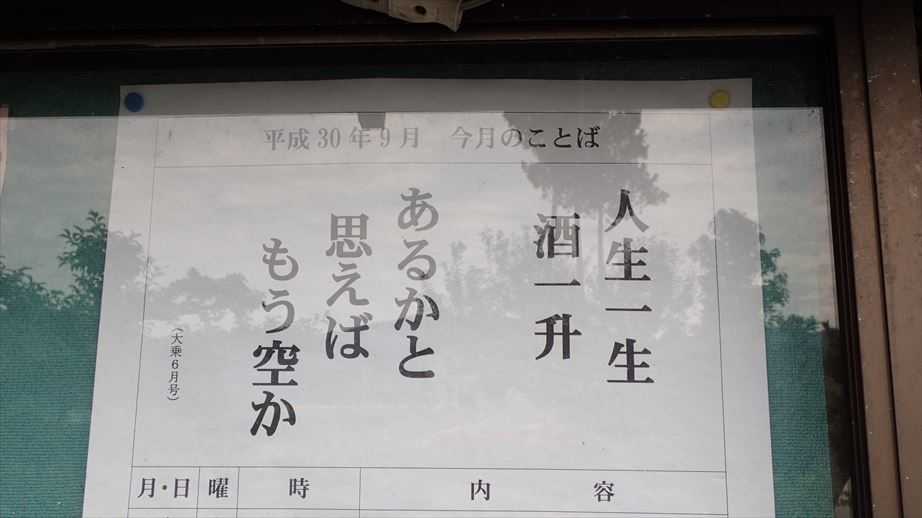 平成30年9月　今月のことば
人生一生
酒一升
あるかと
思えば
もう空か
（大乗6月号）
月・日　曜　時　内　容